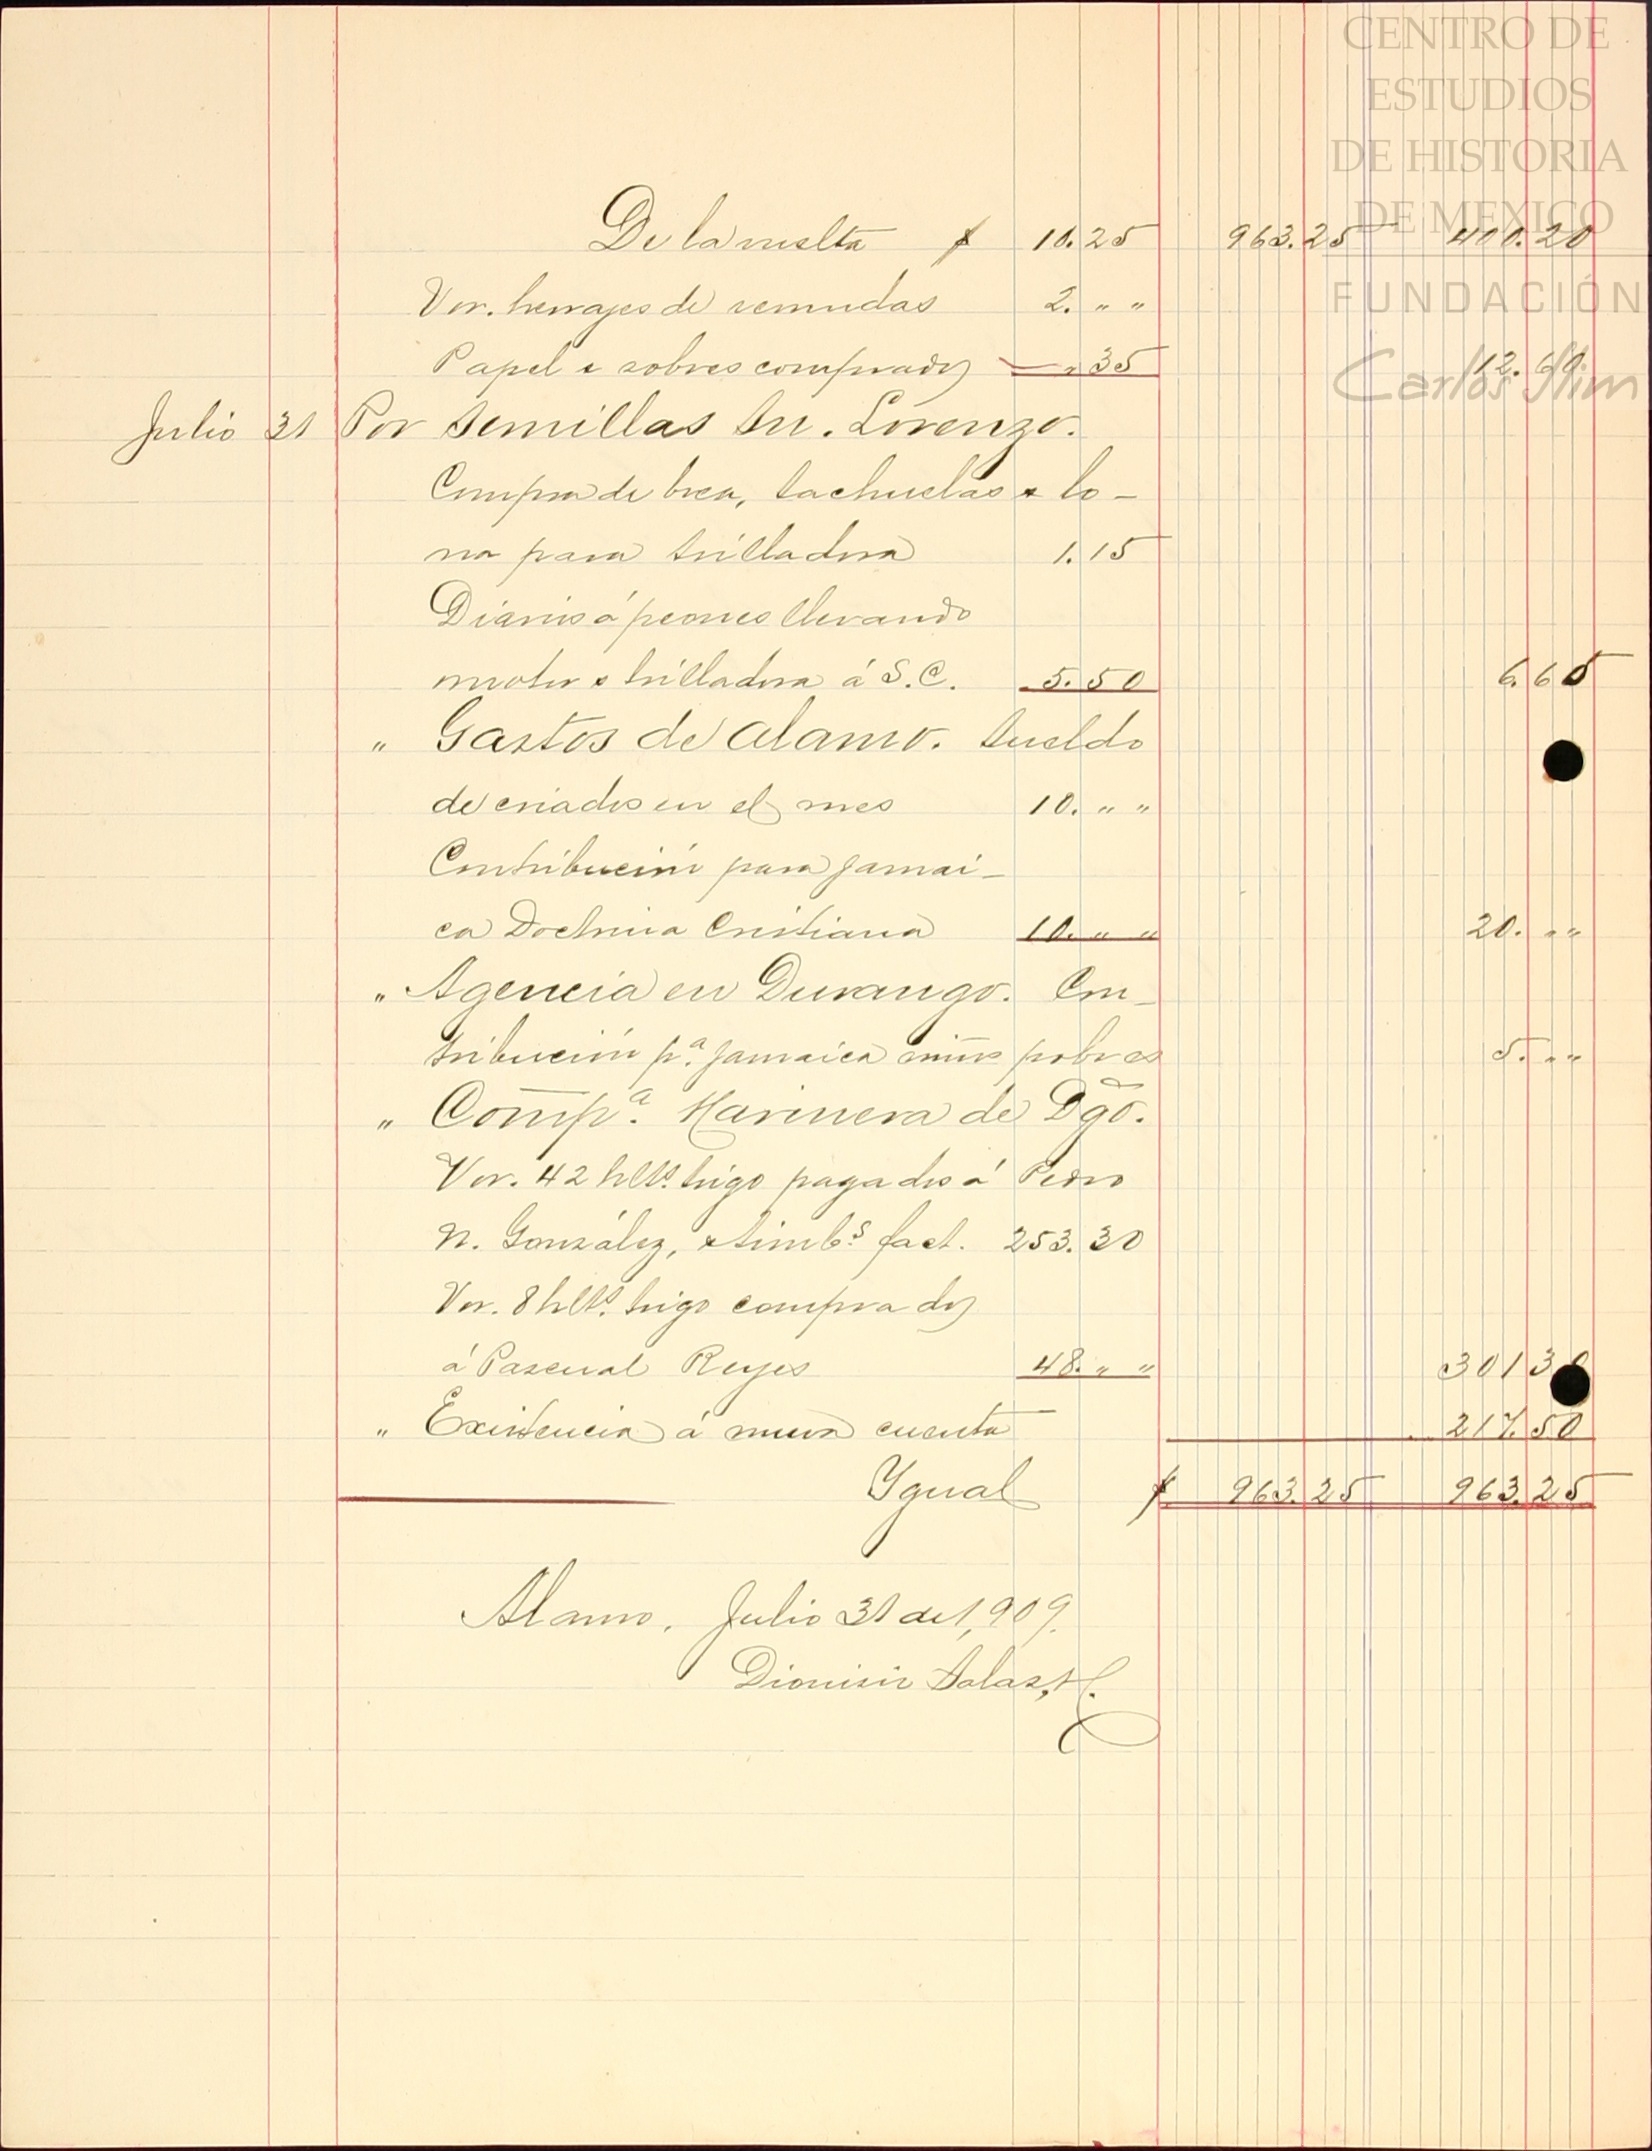 CENTRO DE
ESTUDIOS
DE HISTORIA
DE MEXICO
FUNDACIÓN
Carlos Slim
De la vuelta $ 10.25 963.25 400.20
Vor. herrajes de remudas 2. " "
Papel e sobres comprados " 35 12.60
Julio 31 Por Semillas Sn. Lorenzo.
Compra de brea, tachuelas e lo-
na para trilladora 1.15
Diarios á peones llevando
motor e trilladora á S.C. 5.50 6.65
" Gastos de Alamo. Sueldo
de criados en el mes 10. " "
Contribución para Jamai-
ca Doctrina Cristiana 10. " " 20. " "
" Agencia en Durango. Con-
tribución pa. Jamaica niños pobres 5. " "
" Compa. Harinera de Dgo.
Vor. 42 hlts. trigo pagados á Pedro
N. González, e timbs. fact. 253.30
Vor. 8 hlts. trigo comprados
á Pascual Reyes 48. " " 301 30
" Existencia á nueva cuenta 217.50
Ygual $ 963.25 963.25
Alamo, Julio 31 de 1,909.
Dionisio Salas,